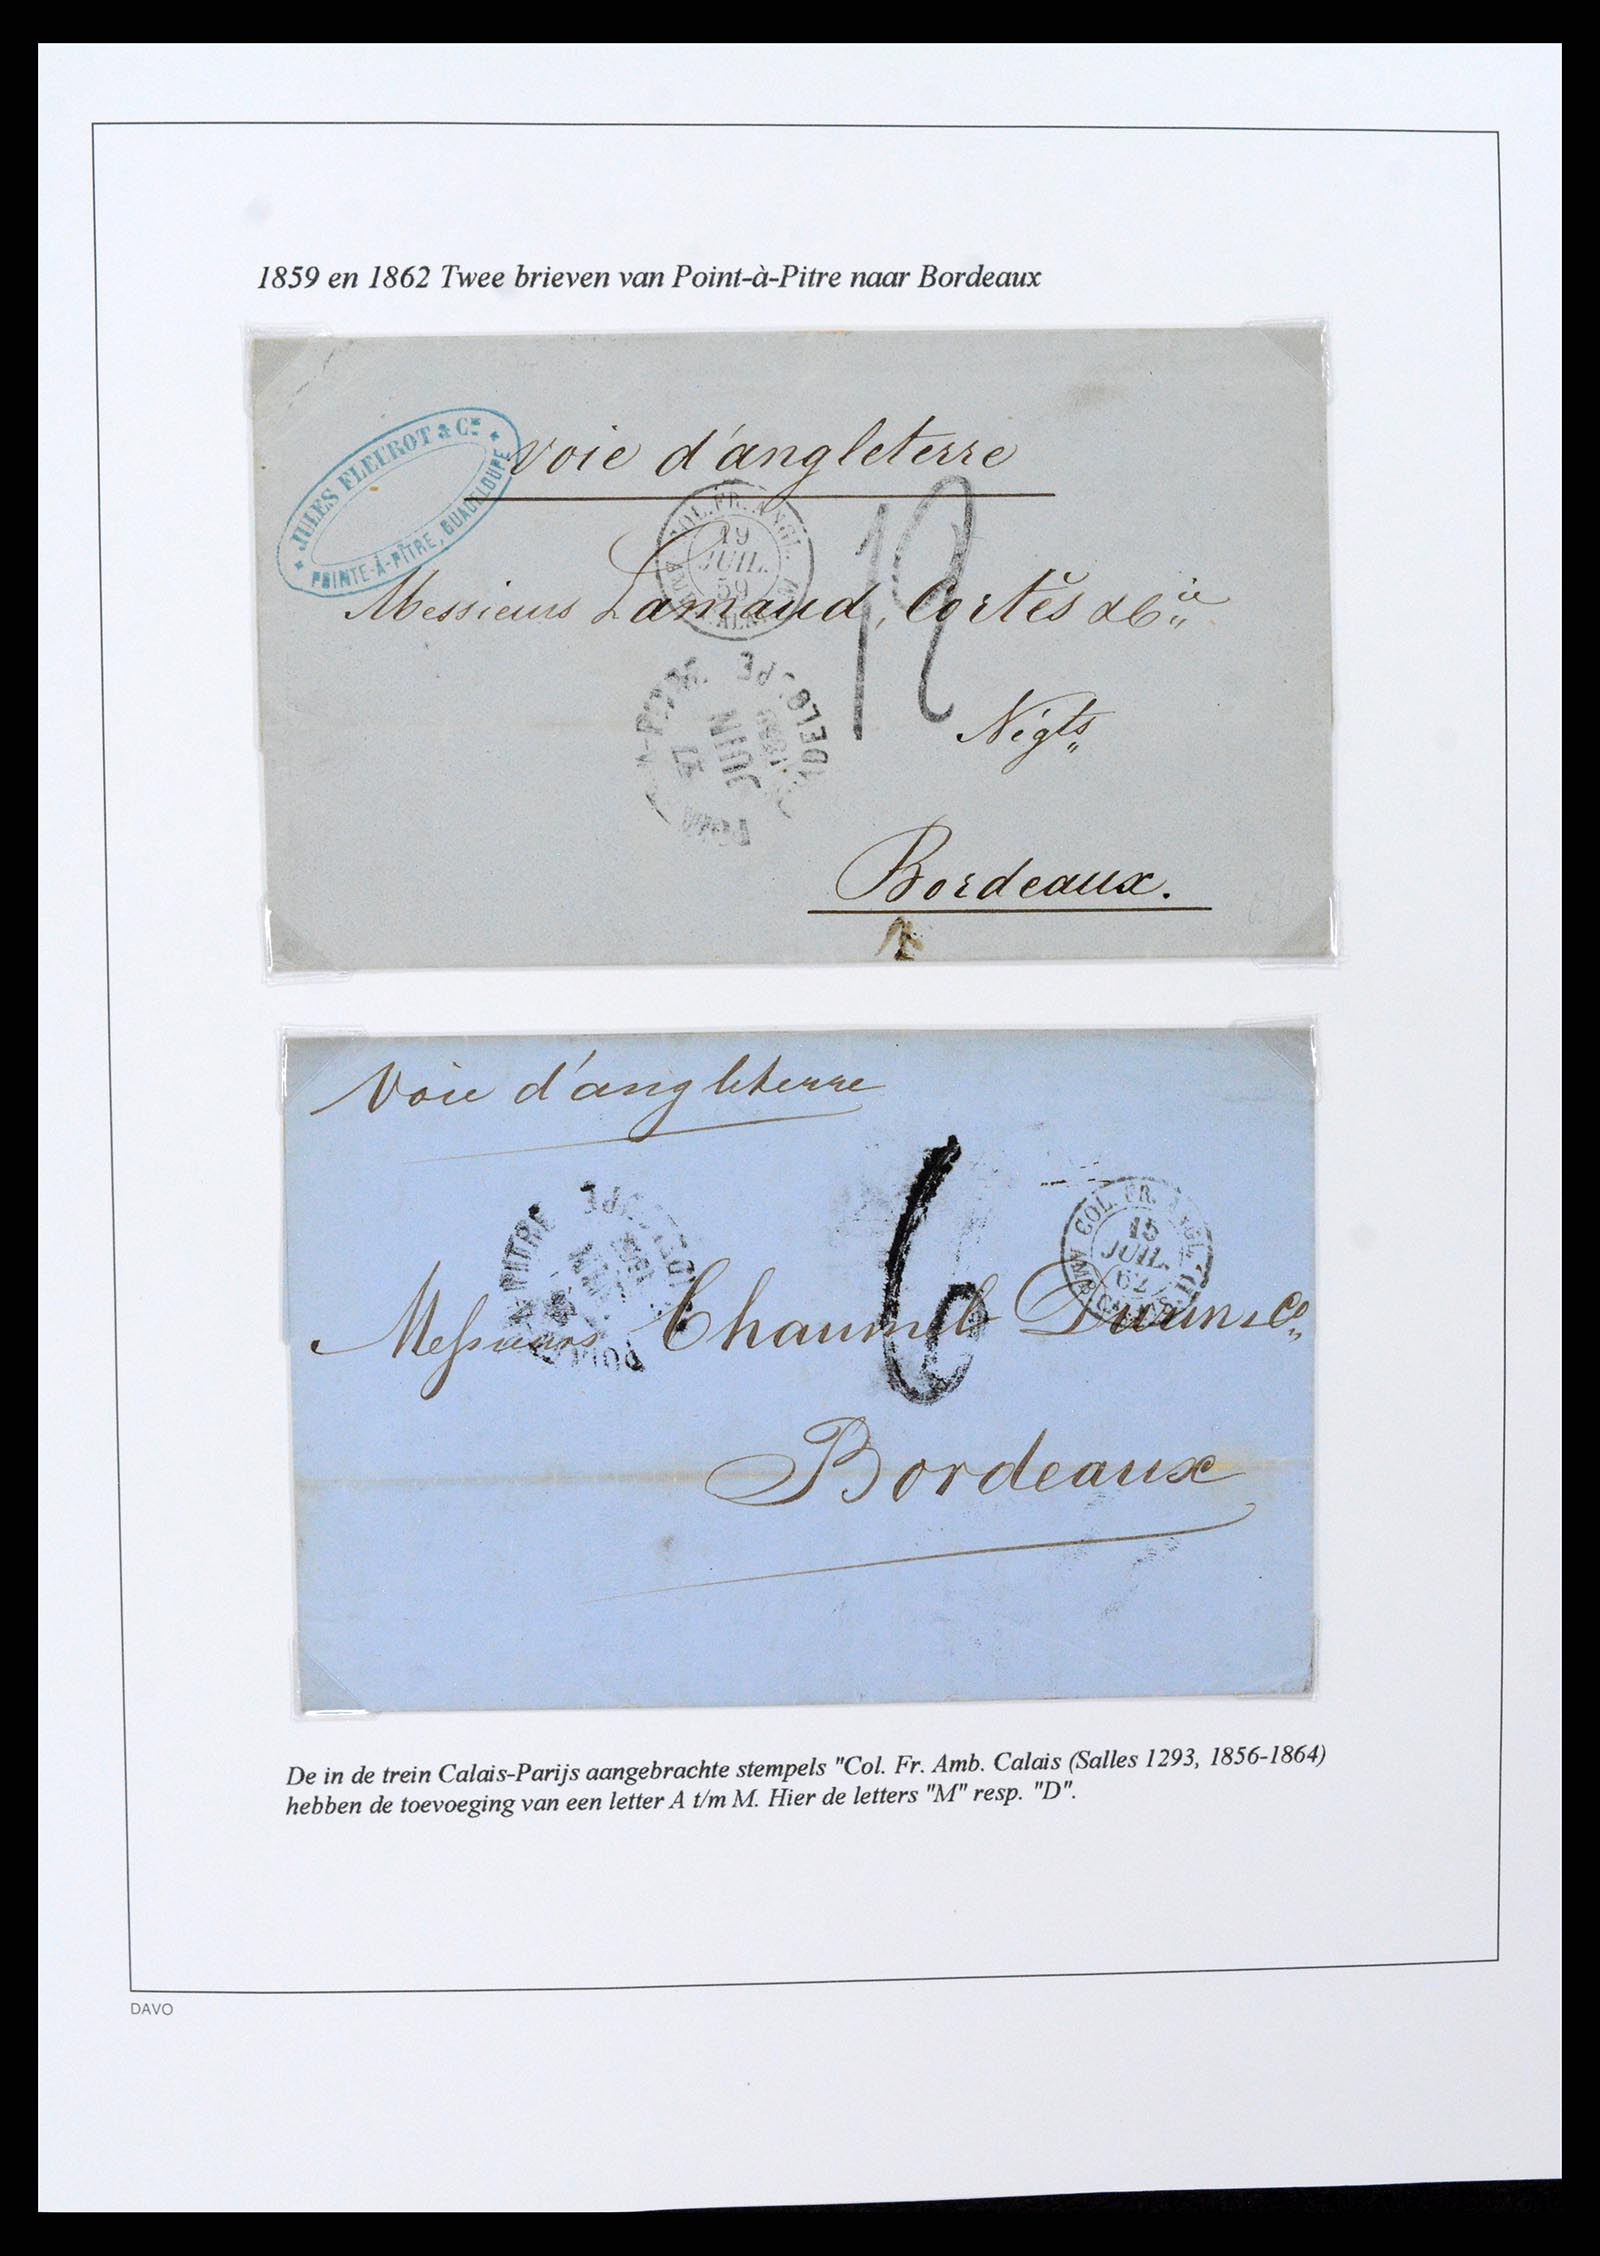 1859 en 1862 Twee brieven van Point-à-Pitre naar Bordeaux
JULES FLEUROT & Cie
POINTE-À-PITRE, GUADELOUPE
Voie d'angleterre
COL. FR. ANGL.
19
JUIL.
59
12
Messieurs Lamaud, Cortès & Cie
JUIN
Négts
Bordeaux.
Voie d'angleterre
COL. FR. ANGL.
15
JUIL.
62
PITRE
6
Messieurs Chaumels Durin & Co
Bordeaux
De in de trein Calais-Parijs aangebrachte stempels "Col. Fr. Amb. Calais (Salles 1293, 1856-1864)
hebben de toevoeging van een letter A t/m M. Hier de letters "M" resp. "D".
DAVO